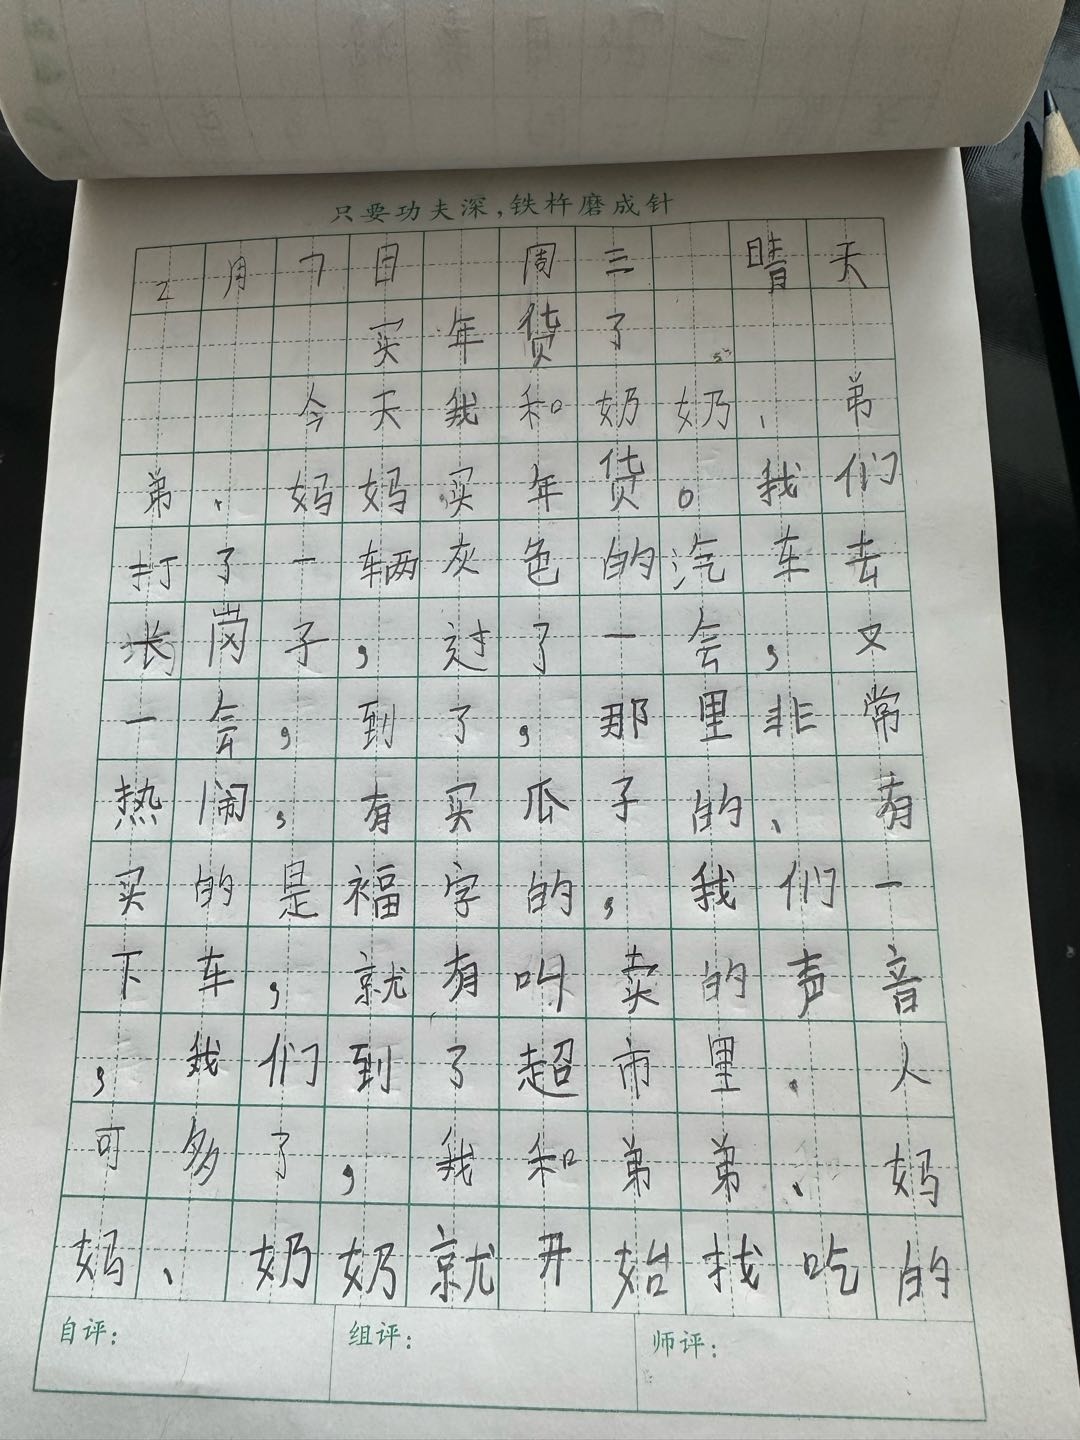 只要功夫深,铁杵磨成针
2月7日 周三 晴天
买年货了
今天我和奶奶、弟
弟、妈妈买年货。我们
打了一辆灰色的汽车去
张岗子,过了一会,又
一会,到了,那里非常
热闹,有买瓜子的、有
买的是福字的,我们一
下车,就有叫卖的声音
,我们到了超市里.人
可多了,我和弟弟、妈
妈、奶奶就开始找吃的
自评: 组评: 师评: